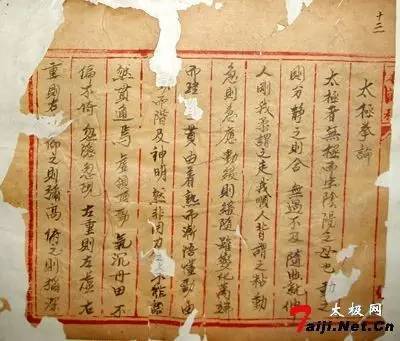 十二
太極拳論
太極者無極而生陰陽之母也動之
則分靜之則合無過不及隨曲就伸
人剛我柔謂之走我順人背謂之粘動
急則急應動緩則緩隨雖變化萬端
而理一貫由着熟而漸悟懂勁由
而階及神明然非用力之不能
然貫通焉虛領頂勁氣沉丹田不
偏不倚忽隱忽現左重則左虛右
重則右仰之則彌高俯之則彌深
太极网
7aiji.Net.Cn